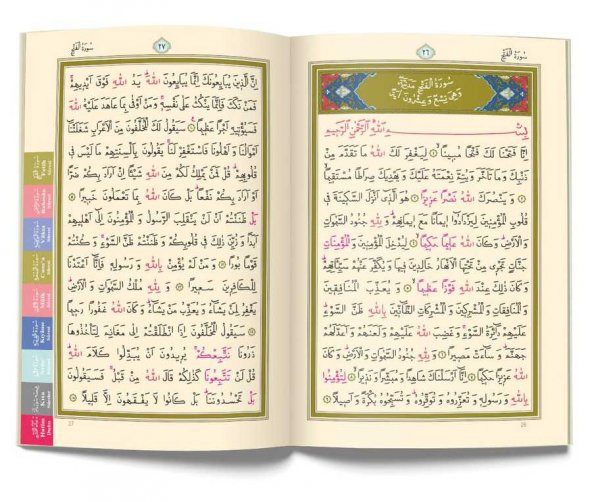 سُورَةُ الْفَتْحِ
٢٦
سُورَةُ الْفَتْحِ مَدَنِيَّةٌ
وَهِىَ تِسْعٌ وَعِشْرُونَ اٰيَةً
بِسْمِ اللّٰهِ الرَّحْمٰنِ الرَّحٖيمِ
اِنَّا فَتَحْنَا لَكَ فَتْحًا مُبٖينًا ۝١ لِيَغْفِرَ لَكَ اللّٰهُ مَا تَقَدَّمَ مِنْ
ذَنْبِكَ وَمَا تَاَخَّرَ وَيُتِمَّ نِعْمَتَهُ عَلَيْكَ وَيَهْدِيَكَ صِرَاطًا مُسْتَقٖيمًا
۝٢ وَيَنْصُرَكَ اللّٰهُ نَصْرًا عَزٖيزًا ۝٣ هُوَ الَّذٖى اَنْزَلَ السَّكٖينَةَ فٖى
قُلُوبِ الْمُؤْمِنٖينَ لِيَزْدَادُوا اٖيمَانًا مَعَ اٖيمَانِهِمْ وَلِلّٰهِ جُنُودُ السَّمٰوَاتِ
وَالْاَرْضِ وَكَانَ اللّٰهُ عَلٖيمًا حَكٖيمًا ۝٤ لِيُدْخِلَ الْمُؤْمِنٖينَ وَالْمُؤْمِنَاتِ
جَنَّاتٍ تَجْرٖى مِنْ تَحْتِهَا الْاَنْهَارُ خَالِدٖينَ فٖيهَا وَيُكَفِّرَ عَنْهُمْ سَيِّـَٔاتِهِمْ
وَكَانَ ذٰلِكَ عِنْدَ اللّٰهِ فَوْزًا عَظٖيمًا ۝٥ وَيُعَذِّبَ الْمُنَافِقٖينَ
وَالْمُنَافِقَاتِ وَالْمُشْرِكٖينَ وَالْمُشْرِكَاتِ الظَّانّٖينَ بِاللّٰهِ ظَنَّ السَّوْءِ
عَلَيْهِمْ دَائِرَةُ السَّوْءِ وَغَضِبَ اللّٰهُ عَلَيْهِمْ وَلَعَنَهُمْ وَاَعَدَّ لَهُمْ
جَهَنَّمَ وَسَاءَتْ مَصٖيرًا ۝٦ وَلِلّٰهِ جُنُودُ السَّمٰوَاتِ وَالْاَرْضِ وَكَانَ
اللّٰهُ عَزٖيزًا حَكٖيمًا ۝٧ اِنَّا اَرْسَلْنَاكَ شَاهِدًا وَمُبَشِّرًا وَنَذٖيرًا ۝٨ لِتُؤْمِنُوا
بِاللّٰهِ وَرَسُولِهٖ وَتُعَزِّرُوهُ وَتُوَقِّرُوهُ وَتُسَبِّحُوهُ بُكْرَةً وَاَصٖيلًا ۝٩
26
سُورَةُ الْفَتْحِ
٢٧
اِنَّ الَّذٖينَ يُبَايِعُونَكَ اِنَّمَا يُبَايِعُونَ اللّٰهَ يَدُ اللّٰهِ فَوْقَ اَيْدٖيهِمْ
فَمَنْ نَكَثَ فَاِنَّمَا يَنْكُثُ عَلٰى نَفْسِهٖ وَمَنْ اَوْفٰى بِمَا عَاهَدَ عَلَيْهُ اللّٰهَ
فَسَيُؤْتٖيهِ اَجْرًا عَظٖيمًا ۝١٠ سَيَقُولُ لَكَ الْمُخَلَّفُونَ مِنَ الْاَعْرَابِ شَغَلَتْنَا
اَمْوَالُنَا وَاَهْلُونَا فَاسْتَغْفِرْ لَنَا يَقُولُونَ بِاَلْسِنَتِهِمْ مَا لَيْسَ فٖى
قُلُوبِهِمْ قُلْ فَمَنْ يَمْلِكُ لَكُمْ مِنَ اللّٰهِ شَيْـًٔا اِنْ اَرَادَ بِكُمْ ضَرًّا
اَوْ اَرَادَ بِكُمْ نَفْعًا بَلْ كَانَ اللّٰهُ بِمَا تَعْمَلُونَ خَبٖيرًا ۝١١
بَلْ ظَنَنْتُمْ اَنْ لَنْ يَنْقَلِبَ الرَّسُولُ وَالْمُؤْمِنُونَ اِلٰى اَهْلٖيهِمْ
اَبَدًا وَزُيِّنَ ذٰلِكَ فٖى قُلُوبِكُمْ وَظَنَنْتُمْ ظَنَّ السَّوْءِ وَكُنْتُمْ
قَوْمًا بُورًا ۝١٢ وَمَنْ لَمْ يُؤْمِنْ بِاللّٰهِ وَرَسُولِهٖ فَاِنَّا اَعْتَدْنَا
لِلْكَافِرٖينَ سَعٖيرًا ۝١٣ وَلِلّٰهِ مُلْكُ السَّمٰوَاتِ وَالْاَرْضِ
يَغْفِرُ لِمَنْ يَشَاءُ وَيُعَذِّبُ مَنْ يَشَاءُ وَكَانَ اللّٰهُ غَفُورًا رَحٖيمًا
۝١٤ سَيَقُولُ الْمُخَلَّفُونَ اِذَا انْطَلَقْتُمْ اِلٰى مَغَانِمَ لِتَاْخُذُوهَا
ذَرُونَا نَتَّبِعْكُمْ يُرٖيدُونَ اَنْ يُبَدِّلُوا كَلَامَ اللّٰهِ
قُلْ لَنْ تَتَّبِعُونَا كَذٰلِكُمْ قَالَ اللّٰهُ مِنْ قَبْلُ فَسَيَقُولُونَ
بَلْ تَحْسُدُونَنَا بَلْ كَانُوا لَا يَفْقَهُونَ اِلَّا قَلٖيلًا ۝١٥
27
Fetih
Vâkıa
Cum'a
Mülk
Kısa
Hatim
Duası